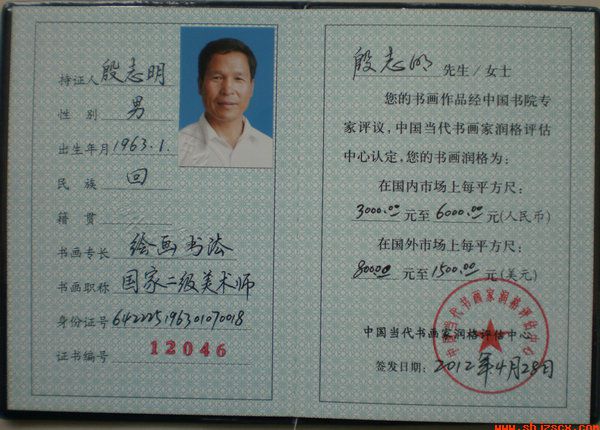 持证人 殷志明
性 别 男
出生年月 1963.1.
民 族 回
籍 贯
书画专长 绘画 书法
书画职称 国家二级美术师
身份证号 642225196301070018
证书编号 12046
殷志明 先生/女士
您的书画作品经中国书院专
家评议,中国当代书画家润格评估
中心认定,您的书画润格为:
在国内市场上每平方尺:
3000.00 元至 6000.00 元(人民币)
在国外市场上每平方尺:
800.00 元至 1500.00 元(美元)
中国当代书画家润格评估中心
签发日期: 2012年4月28日
中国当代书画家润格评估中心
www.sbjzscx.com